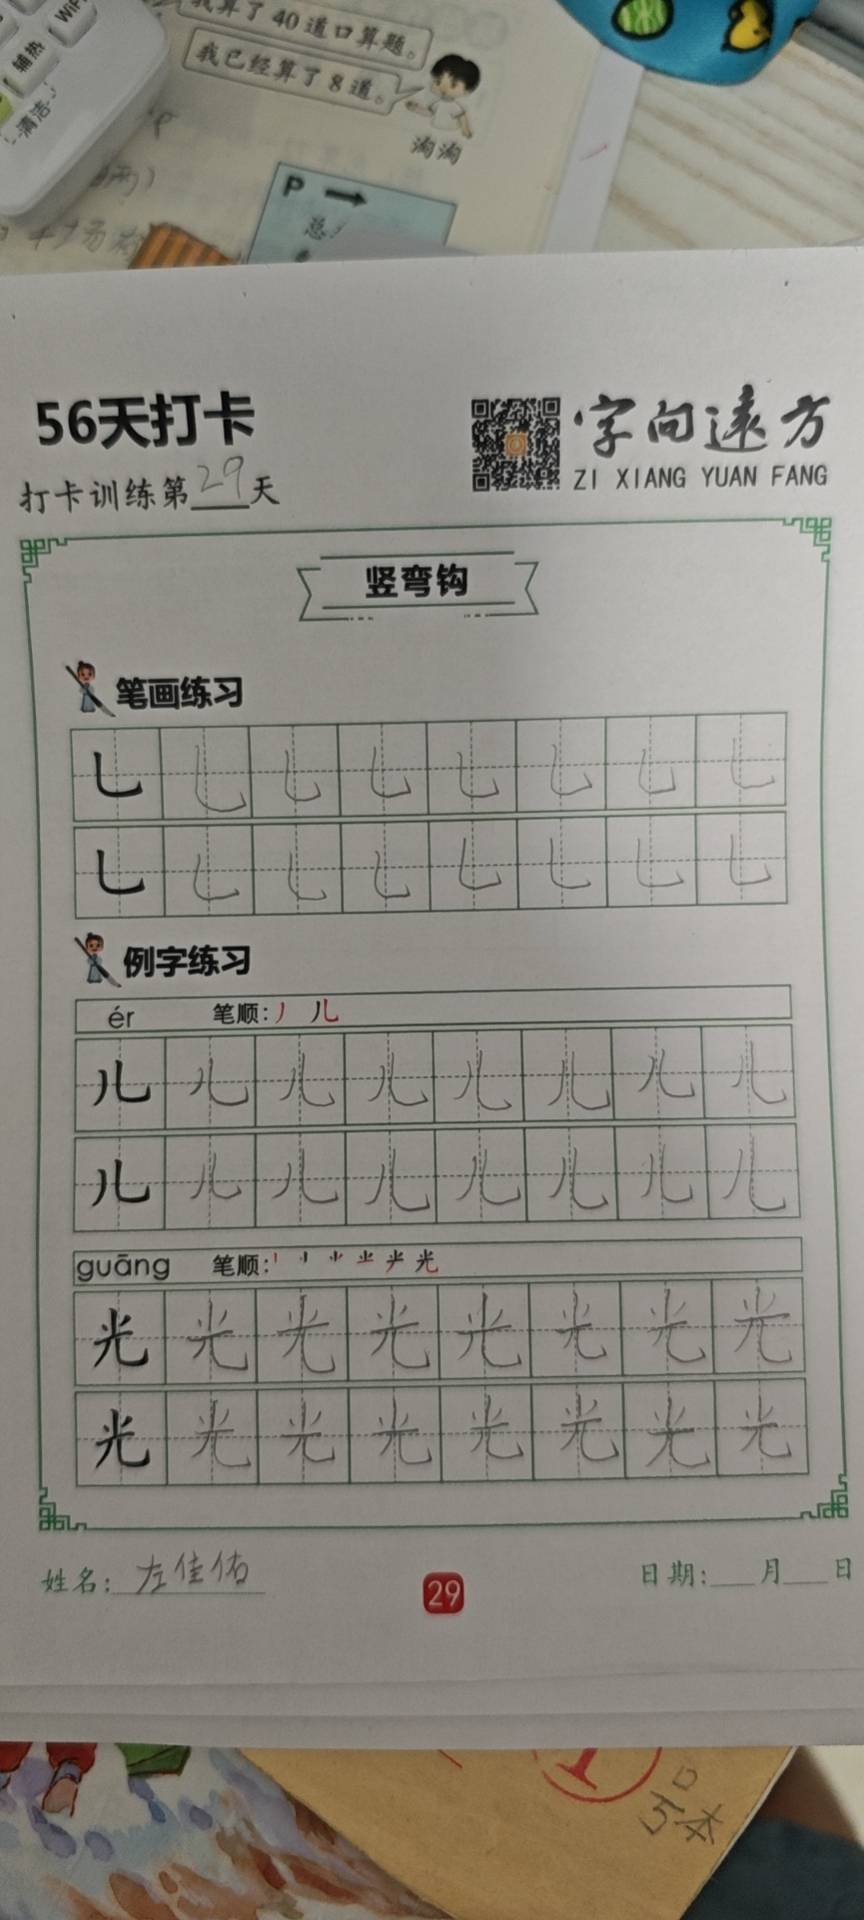 我算了40道口算题。
我已经算了8道。
淘淘
WiFi
辅热
清洁
P
总
56天打卡
字向远方
ZI XIANG YUAN FANG
打卡训练第29天
竖弯钩
笔画练习
乚 乚 乚 乚 乚 乚 乚 乚
乚 乚 乚 乚 乚 乚 乚 乚
例字练习
ér 笔顺：丿 儿
儿 儿 儿 儿 儿 儿 儿 儿
儿 儿 儿 儿 儿 儿 儿 儿
guāng 笔顺：
光 光 光 光 光 光 光 光
光 光 光 光 光 光 光 光
姓名：左佳佑
29
日期：___月___日
5本